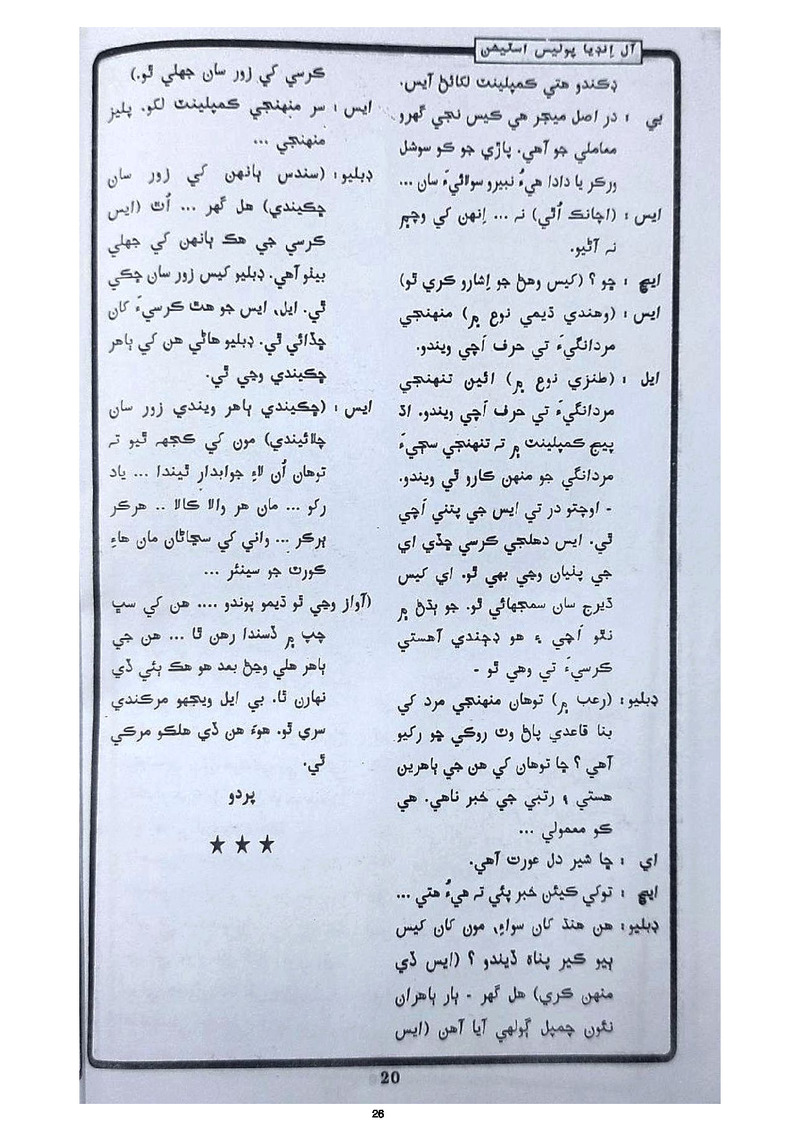 آل اِنڊيا پوليس اسٽيشن
ڊڪندو هتي ڪمپلينٽ لکائڻ آيس.
بي : در اصل ميجر هي ڪيس نجي گهرو
معاملي جو آهي. پاڙي جو ڪو سوشل
ورڪر يا دادا هيءُ نبيرو سولائيءَ سان ...
ايس : (اچانڪ اُٿي) نہ ... اِنهن کي وچ ۾
نہ آڻيو.
ايڇ : ڇو ؟ (ڪيس وهڻ جو اِشارو ڪري ٿو)
ايس : (وهندي ڌيمي نوع ۾) منهنجي
مردانگيءَ تي حرف اَچي ويندو.
ايل : (طنزي نوع ۾) ائين تنهنجي
مردانگيءَ تي حرف اَچي ويندو. اڌ
پيج ڪمپلينٽ ۾ تہ تنهنجي سڄيءَ
مردانگي جو منهن ڪارو ٿي ويندو.
- اوچتو در تي ايس جي پتني اَچي
ٿي. ايس دهلجي ڪرسي ڇڏي اي
جي پٺيان وڃي بهي ٿو. اي ڪيس
ڌيرج سان سمجهائي ٿو. جو ٻڌڻ ۾
نٿو اَچي ۽ هو ڊڄندي آهستي
ڪرسيءَ تي وهي ٿو -
ڊبليو : (رعب ۾) توهان منهنجي مرد کي
بنا قاعدي پاڻ وٽ روڪي ڇو رکيو
آهي ؟ ڇا توهان کي هن جي ٻاهرين
هستي ۽ رتبي جي خبر ناهي. هي
ڪو معمولي ...
اي : ڇا شير دل عورت آهي.
ايڇ : توکي ڪيئن خبر پئي تہ هيءُ هتي ...
ڊبليو : هن هنڌ کان سواءِ، مون کان ڪيس
ٻيو ڪير پناه ڏيندو ؟ (ايس ڏي
منهن ڪري) هل گهر - ٻار ٻاهران
نئون چمپل ڳولهي آيا آهن (ايس
ڪرسي کي زور سان جهلي ٿو.)
ايس : سر منهنجي ڪمپلينٽ لکو. پليز
منهنجي ...
ڊبليو : (سندس ٻانهن کي زور سان
ڇڪيندي) هل گهر ... اُٿ (ايس
ڪرسي جي هڪ ٻانهن کي جهلي
بيٺو آهي. ڊبليو ڪيس زور سان ڇڪي
ٿي. ايل، ايس جو هٿ ڪرسيءَ کان
ڇڏائي ٿي. ڊبليو هاڻي هن کي ٻاهر
ڇڪيندي وڃي ٿي.
ايس : (ڇڪيندي ٻاهر ويندي زور سان
چلائيندي) مون کي ڪجهہ ٿيو تہ
توهان اُن لاءِ جوابدار ٿيندا ... ياد
رکو ... مان هر والا ڪالا .. هرڪر
ٻرڪر ... واني کي سڃاڻان مان هاءِ
ڪورٽ جو سينئر ...
(آواز وڃي ٿو ڌيمو پوندو .... هن کي سڀ
چپ ۾ ڏسندا رهن ٿا ... هن جي
ٻاهر هلي وڃڻ بعد هو هڪ ٻئي ڏي
نهارن ٿا. بي ايل ويجهو مرڪندي
سري ٿو. هوءَ هن ڏي هلڪو مرڪي
ٿي.
پردو
★ ★ ★
20
26